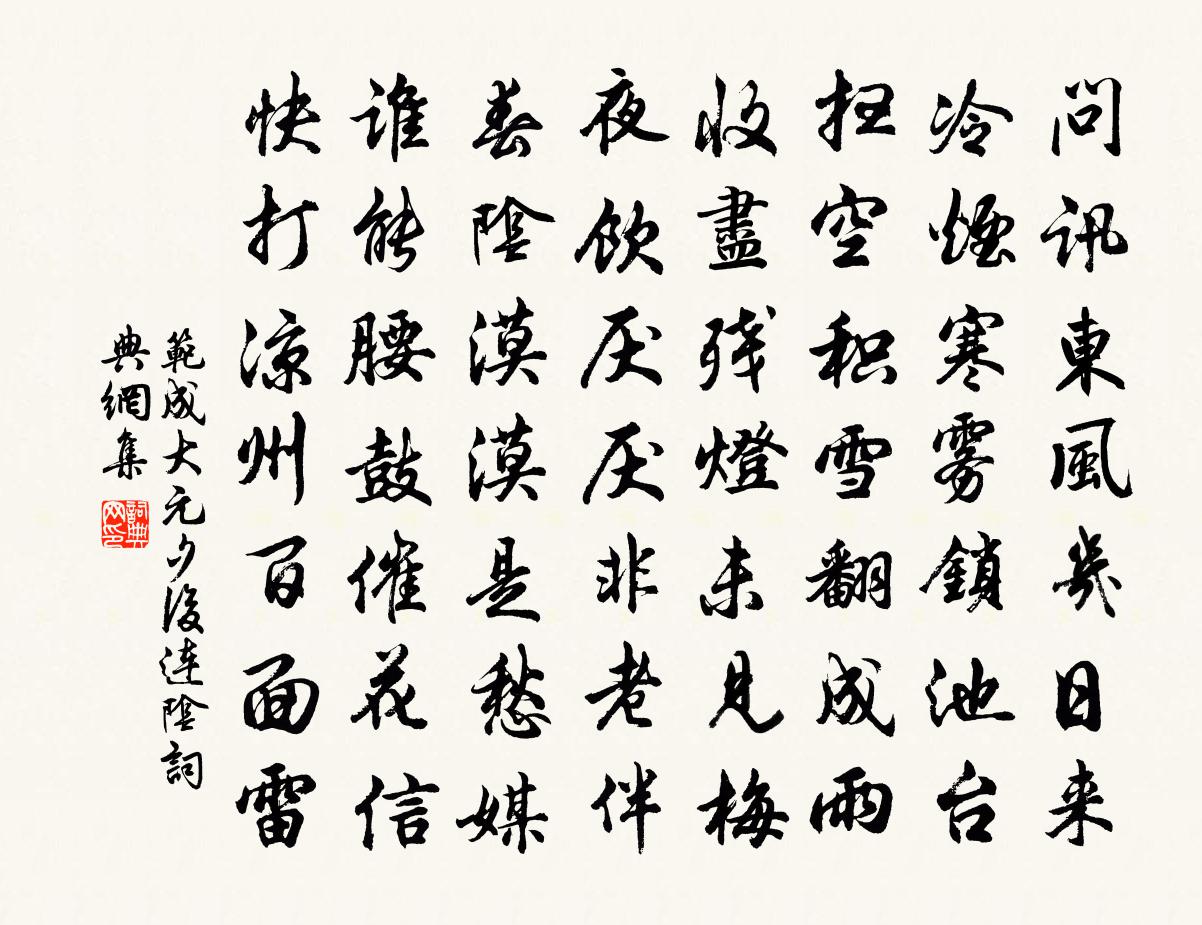 問訊東風幾日来
冷煙寒雾鎖池台
扫空积雪翻成雨
收盡残燈未見梅
夜飲厌厌非老伴
春陰漠漠是愁媒
谁能腰鼓催花信
快打凉州百面雷
範成大元夕後連陰詞
典網集
詞典网印